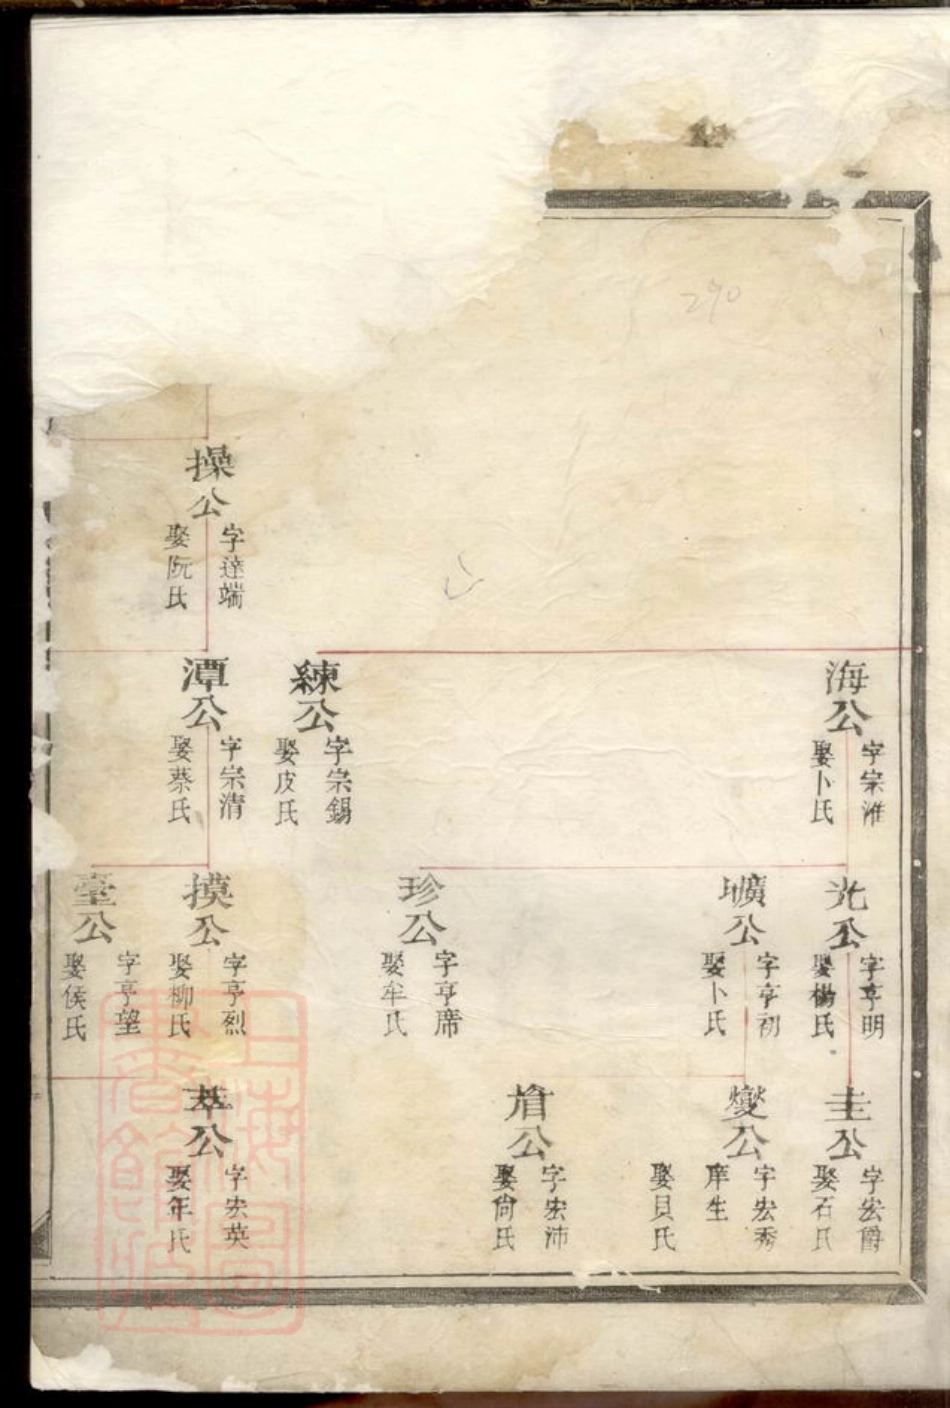 290
操公
字達端
娶阮氏
海公
字宗淮
娶卜氏
練公
字宗錫
娶皮氏
潭公
字宗清
娶蔡氏
光公
字亨明
娶楊氏
壙公
字亨初
娶卜氏
珍公
字亨席
娶牟氏
摸公
字亨烈
娶柳氏
臺公
字亨望
娶侯氏
圭公
字宏爵
娶石氏
燮公
字宏秀
庠生
娶貝氏
公
字宏沛
娶尙氏
公
字宏英
娶年氏
上海圖書館藏